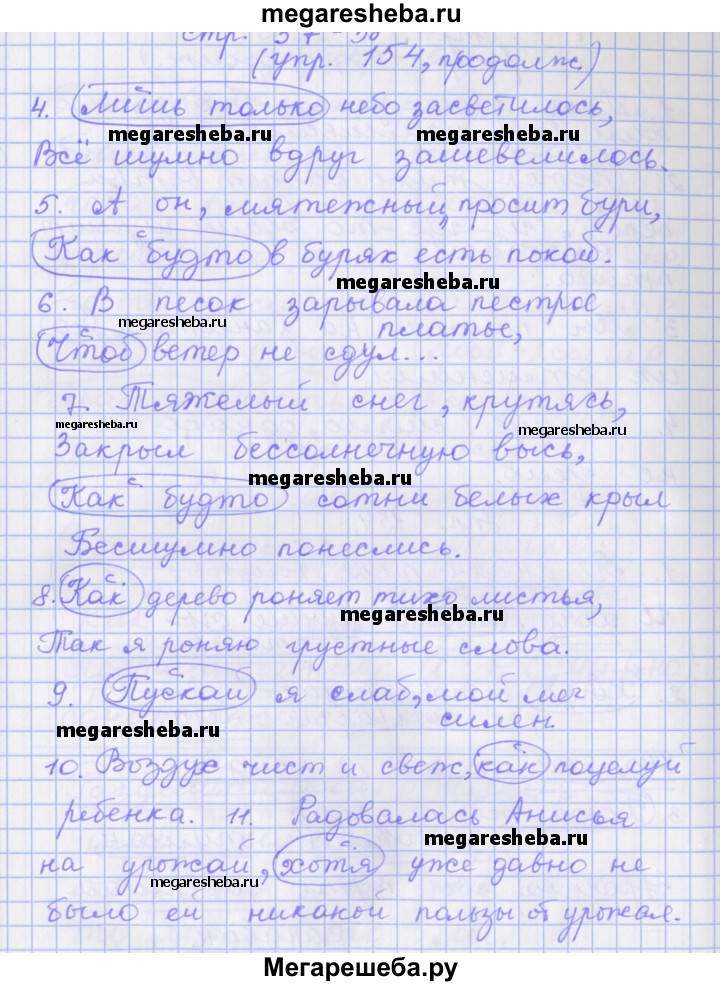 megaresheba.ru
стр. 57-58
(упр. 154, продолж.)
4. Лишь только небо засветилось,
megaresheba.ru megaresheba.ru
Всё шумно вдруг зашевелилось.
5. А он, мятежный, просит бури,
Как будто в бурях есть покой.
megaresheba.ru
6. В песок зарывала пестрое
megaresheba.ru
платье,
Чтоб ветер не сдул...
7. Тяжелый снег, крутясь,
megaresheba.ru megaresheba.ru
Закрыл бессолнечную высь,
megaresheba.ru
Как будто сотни белых крыл
Бесшумно понеслись.
8. Как дерево роняет тихо листья,
megaresheba.ru
Так я роняю грустные слова.
9. Пускай я слаб, мой меч
силен.
megaresheba.ru
10. Воздух чист и свеж, как поцелуй
ребенка. 11. Радовалась Анисья
megaresheba.ru
на урожай, хотя уже давно не
megaresheba.ru
было ей никакой пользы от урожая.
Мегарешеба.ру